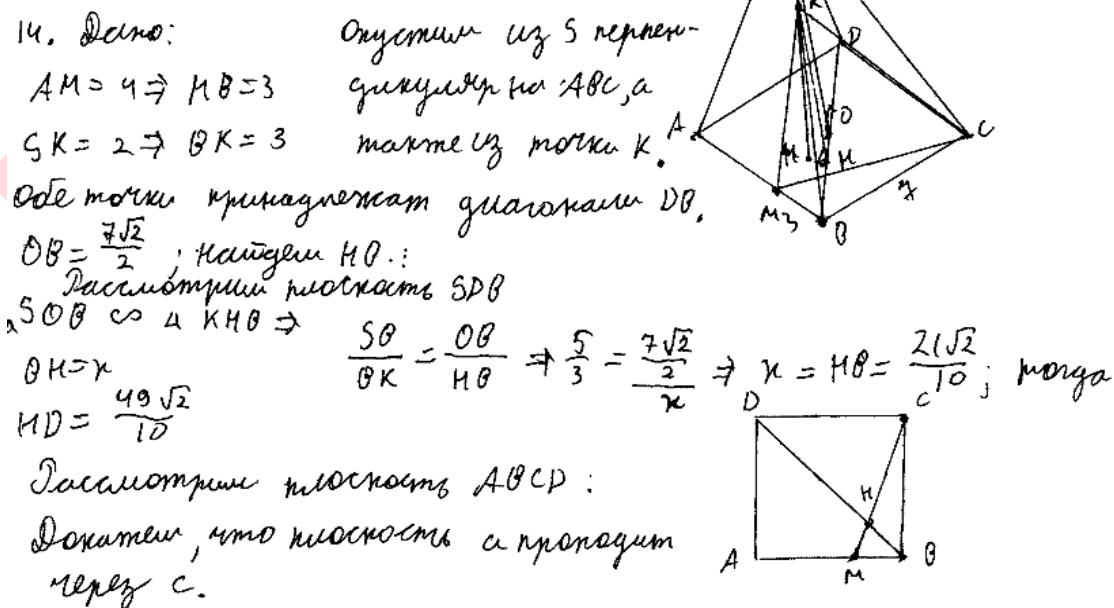 14. Дано:
Опустим из S перпен-
AM = 4 ⇒ MB = 3
дикуляр на ABC, а
SK = 2 ⇒ BK = 3
также из точки K.
Обе точки принадлежат диагонали DB.
OB = 7√2/2 ; найдем HB.:
Рассмотрим плоскость SDB
△SOB ∽ △KHB ⇒
SB/BK = OB/HB ⇒ 5/3 = (7√2/2)/x ⇒ x = HB = 21√2/10; тогда
BH = x
HD = 49√2/10
Рассмотрим плоскость ABCD:
Докажем, что плоскость α проходит
через C.
K
D
A
O
C
H
M 3
7
B
D
C
H
A
M
B